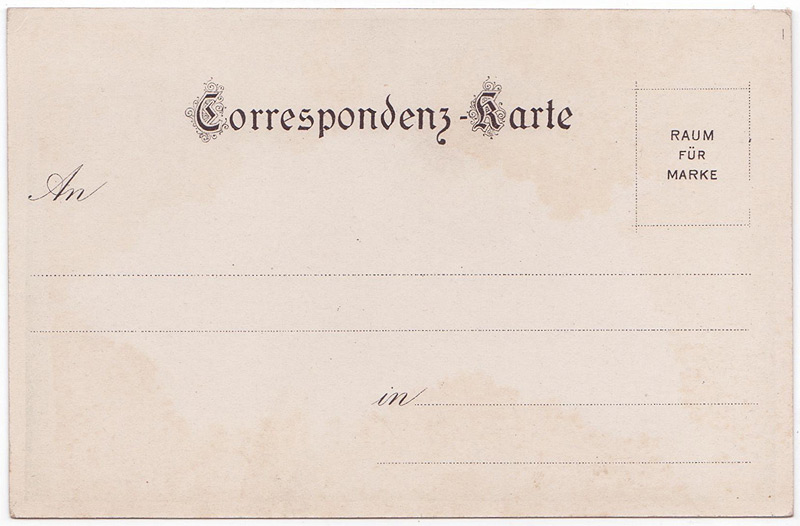 Correspondenz-Karte
RAUM
FÜR
MARKE
An
in